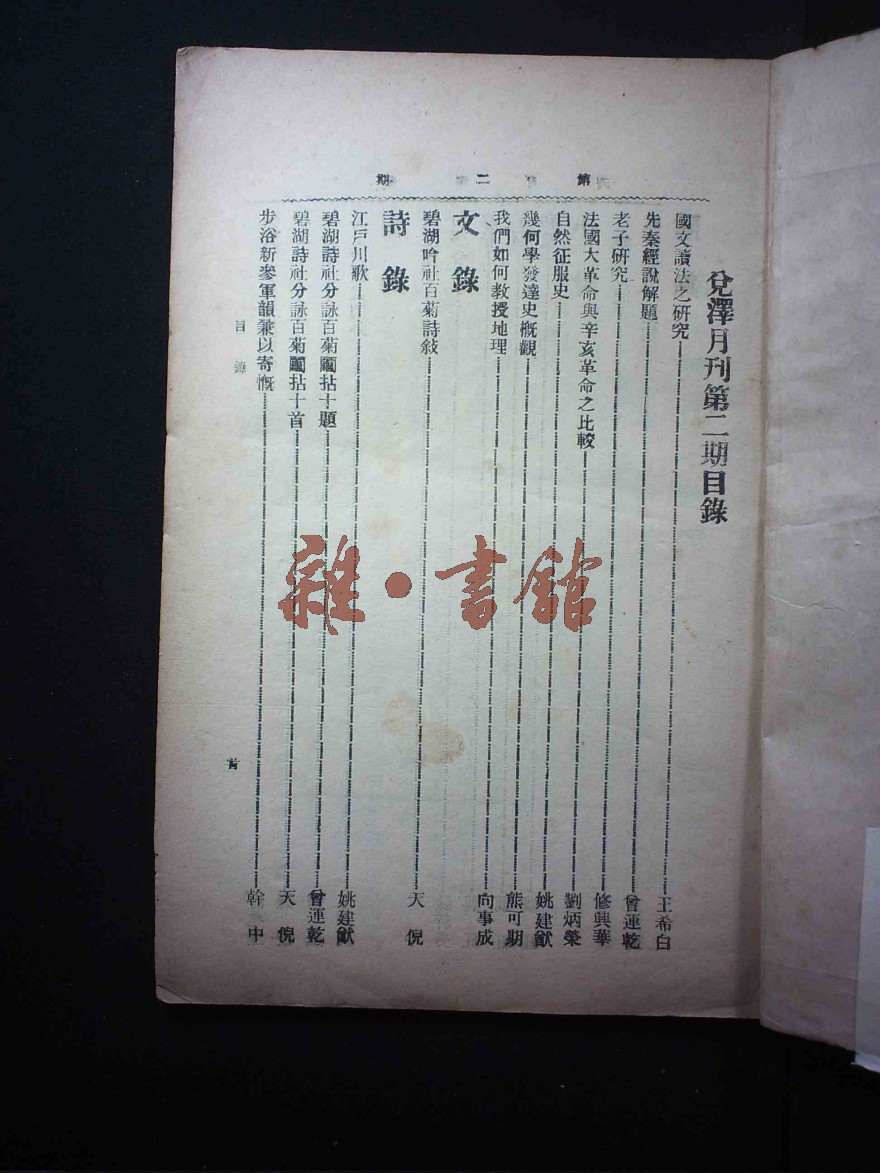 第二期
兌澤月刊第二期目錄
國文讀法之研究 王希白
先秦經說解題 曾運乾
老子研究 修興華
法國大革命與辛亥革命之比較 劉炳榮
自然征服史 姚建猷
幾何學發達史概觀 熊可期
我們如何教授地理 向事成
文錄
碧湖吟社百菊詩敍 天倪
詩錄
江戶川歌 姚建猷
碧湖詩社分詠百菊鬮拈十題 曾運乾
碧湖詩社分詠百菊鬮拈十首 天倪
步浴新參軍韻兼以寄慨 幹中
目錄
首
雜·書館